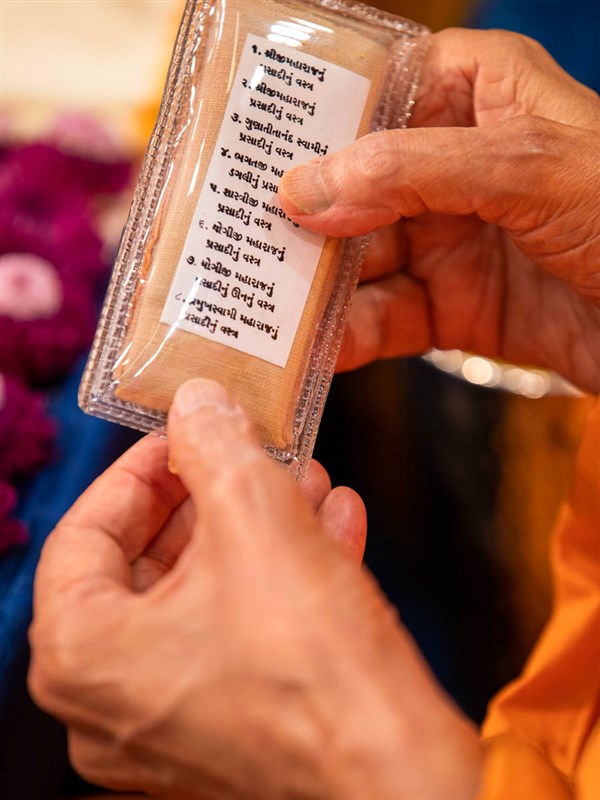 ૧. શ્રીજીમહારાજનું
પ્રસાદીનું વસ્ત્ર
૨. શ્રીજીમહારાજનું
પ્રસાદીનું વસ્ત્ર
૩. ગુણાતીતાનંદ સ્વામીનું
પ્રસાદીનું વસ્ત્ર
૪. ભગતજી
ડગલીનું
૫. શાસ્ત્રીજી
પ્રસાદીનું વસ્ત્ર
૬. યોગીજી મહારાજનું
પ્રસાદીનું વસ્ત્ર
૭. યોગીજી મહારાજનું
પ્રસાદીનું ઊનનું વસ્ત્ર
૮. પ્રમુખસ્વામી મહારાજનું
પ્રસાદીનું વસ્ત્ર